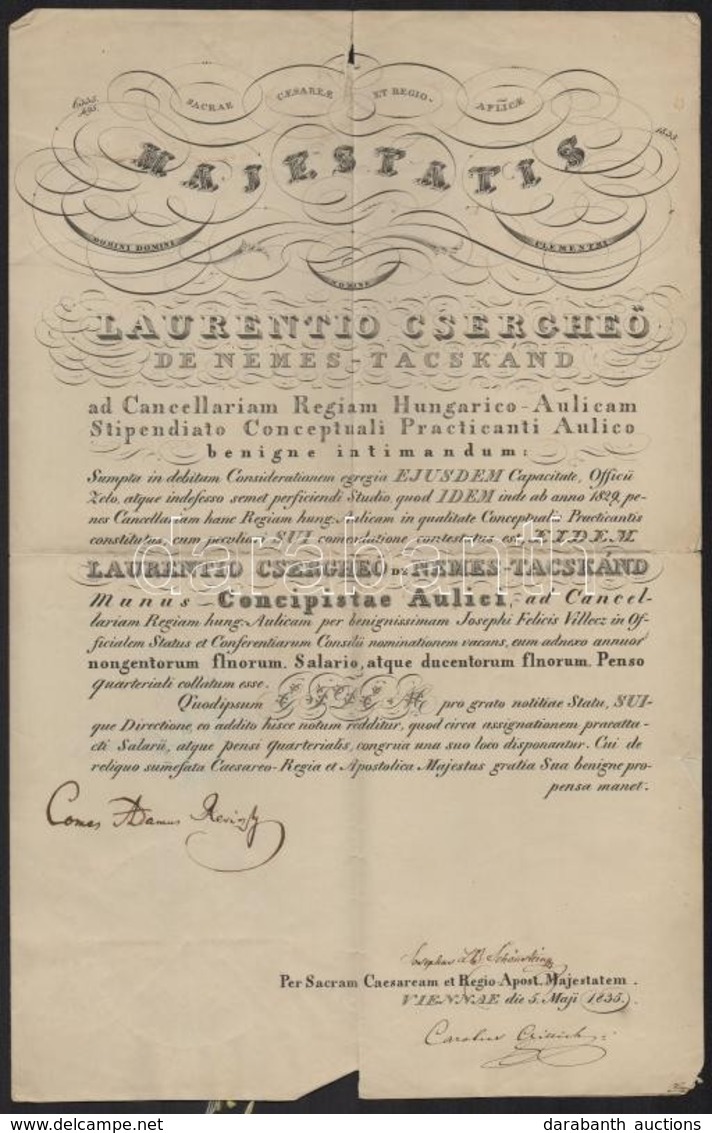 SACRAE CAESAREAE ET REGIO- APLICAE
6535.
495.
1835.
MAJESTATIS
DOMINI DOMINI CLEMENTMI
NOMINE
LAURENTIO CSERGHEÖ
DE NEMES-TACSKAND
ad Cancellariam Regiam Hungarico-Aulicam
Stipendiato Conceptuali Practicanti Aulico
benigne intimandum:
Sumpta in debitam Considerationem egregia EJUSDEM Capacitate, Officii
Zelo, atque indefesso semet perficiendi Studio, quod IDEM inde ab anno 1829, pe-
nes Cancellariam hanc Regiam hung: Aulicam in qualitate Conceptualis Practicantis
constitutus, cum peculiari SUI comendatione contestatus est, EIDEM
LAURENTIO CSERGHEÖ DE NEMES-TACSKÁND
Munus Concipistae Aulici, ad Cancel-
lariam Regiam hung: Aulicam per benignissimam Josephi Felicis Villecz in Of-
ficialem Status et Conferentiarum Consilii nominationem vacans, cum adnexo annuor
nongentorum flnorum. Salario, atque ducentorum flnorum. Penso
quarteriali collatum esse.
Quodipsum EIDEM pro grato notitiae Statu, SUI-
que Directione, eo addito hisce notum redditur, quod circa assignationem praeatta-
cti Salarii, atque pensi quarterialis, congrua una suo loco disponantur. Cui de
reliquo sumefata Caesareo-Regia et Apostolica Majestas gratia Sua benigne pro-
pensa manet.
Comes Adamus Reviczky
Josephus
Per Sacram Caesaream et Regio Apost. Majestatem.
VIENNAE die 5. Maji 1835.
Carolus
darabanth
darabanth auctions